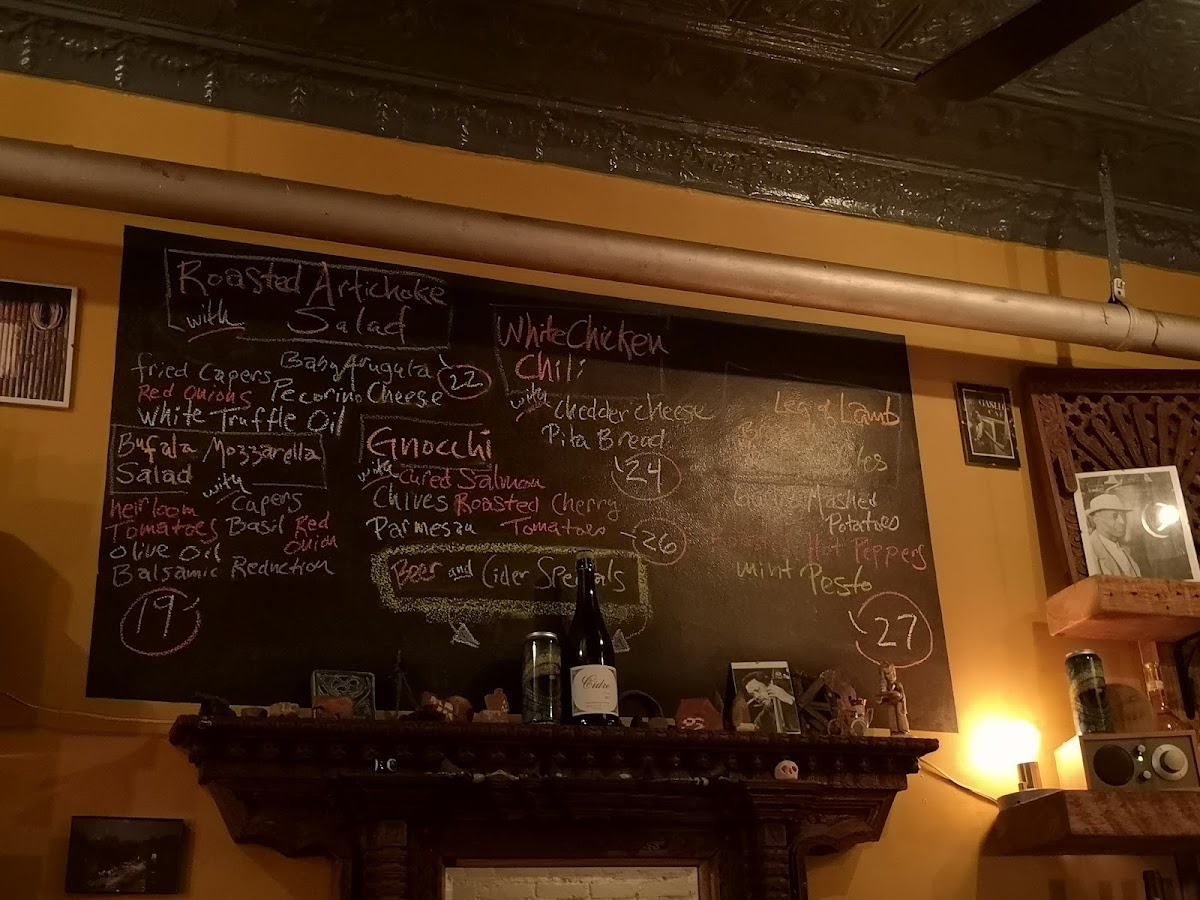 Roasted Artichoke
with Salad
fried Capers Baby Arugula
Red Onions Pecorino Cheese
White Truffle Oil
22
Bufala Mozzarella
Salad
with
heirloom Capers
Tomatoes Basil Red
Onion
Olive Oil
Balsamic Reduction
19
White Chicken
Chili
with Chedder cheese
Pita Bread
24
Gnocchi
with Cured Salmon
Chives Roasted Cherry
Parmesan Tomatoes
26
Beer and Cider Specials
Leg of Lamb
Mashed
Potatoes
Hot Peppers
mint Pesto
27
Cidre